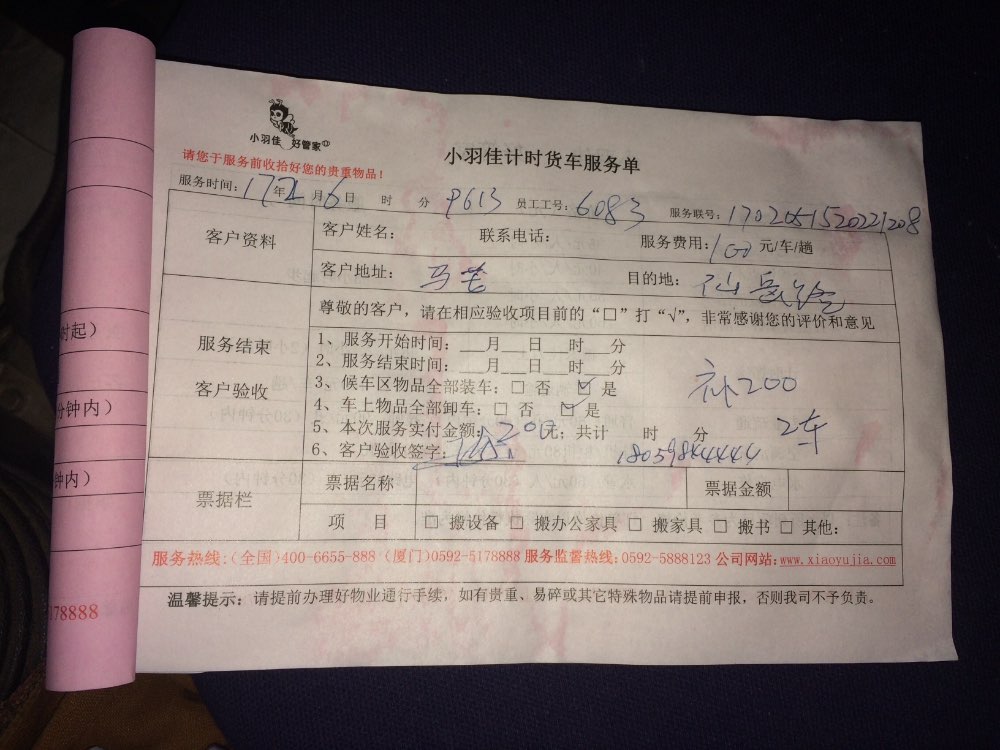 小羽佳 好管家
请您于服务前收拾好您的贵重物品！
小羽佳计时货车服务单
服务时间：17年2月6日 时 分 9613 员工工号：6083 服务联号：1702051520221208
客户资料
客户姓名： 联系电话： 服务费用：100元/车/趟
客户地址： 目的地：
尊敬的客户，请在相应验收项目前的“□”打“√”，非常感谢您的评价和意见
服务结束
客户验收
1、服务开始时间：___月___日___时___分
2、服务结束时间：___月___日___时___分
3、候车区物品全部装车：□ 否 ☑ 是
补200
4、车上物品全部卸车：□ 否 ☑ 是
5、本次服务实付金额：200元；共计 时 分
2车
6、客户验收签字： 18059844444
票据栏
票据名称 票据金额
项 目 □ 搬设备 □ 搬办公家具 □ 搬家具 □ 搬书 □ 其他：
服务热线：(全国)400-6655-888 (厦门)0592-5178888 服务监督热线：0592-5888123 公司网站：www.xiaoyujia.com
温馨提示：请提前办理好物业通行手续，如有贵重、易碎或其它特殊物品请提前申报，否则我司不予负责。
时起）
分钟内）
钟内）
178888